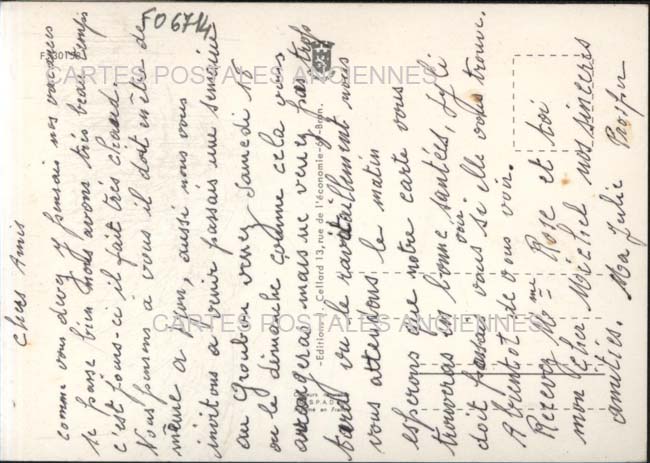 FO6714
CARTES POSTALES ANCIENNES
CARTES POSTALES ANCIENNES
-Editions J. Cellard 13, rue de l'économie-69-Bron.
Chers Amis
comme vous devez y pensais nos vacances
se passe bien nous avons très beau temps
c'est jours-ci il fait très chaud.
Nous pensons à vous il doit en être de
même à Lyon, aussi nous vous
invitons a venir passais une semaine
au Groubou venez Samedi 10
ou le démanche comme cela vous
arrangeras mais ne venez pas trop
tard vu le ravitaillement nous
vous attendons le matin
esperons que notre carte vous
trouveras en bonne santées, sy li
doit vous si elle vous trouve.
oui
A bientot de vous voir.
Recevez Mme Rose et toi
mon cher Michel nos sincères
amitiés. Ma Julie